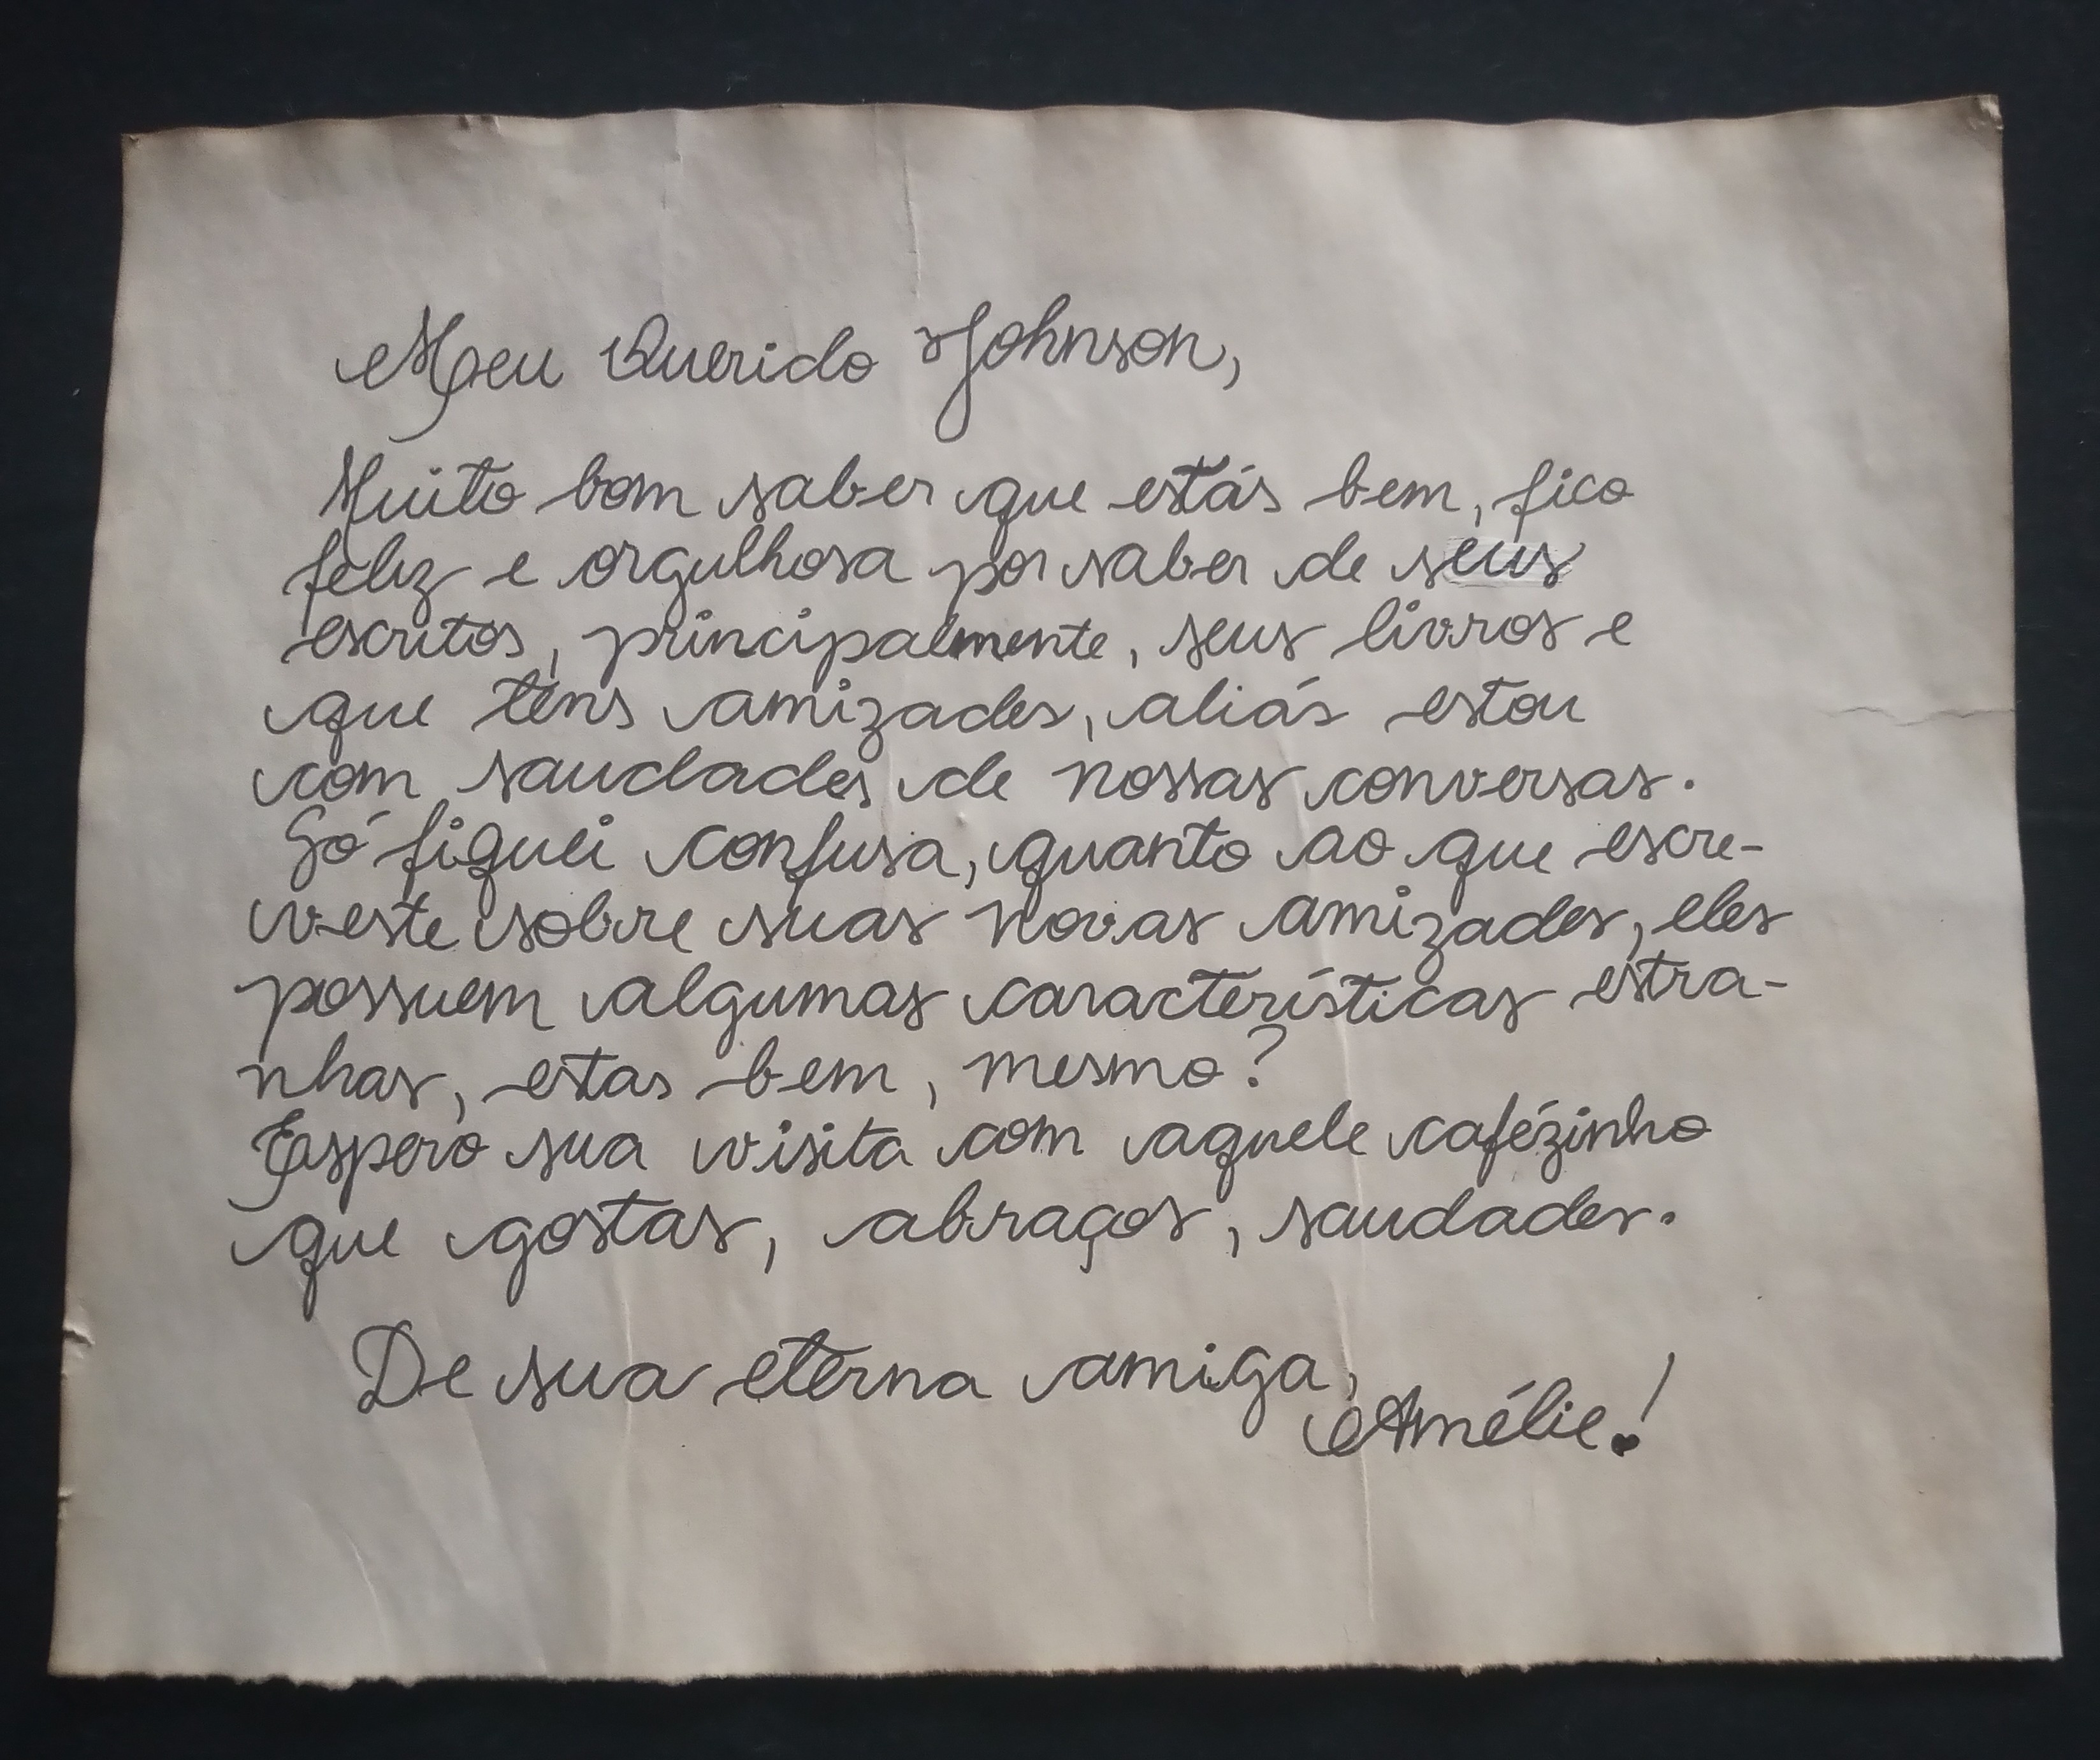 Meu Querido Johnson,
Muito bom saber que estás bem, fico
feliz e orgulhosa por saber de seus
escritos, principalmente, seus livros e
que tens amizades, aliás estou
com saudades de nossas conversas.
Só fiquei confusa, quanto ao que escre-
veste sobre suas novas amizades, eles
possuem algumas características estra-
nhas, estas bem, mesmo?
Espero sua visita com aquele cafézinho
que gostas, abraços, saudades.
De sua eterna amiga,
Amélie!